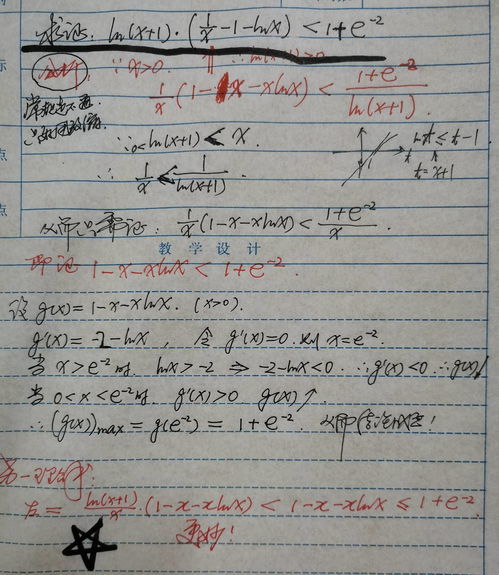 求证: ln(x+1)·(1/x-1-lnx)<1+e^-2
分析: ∵x>0. ∴ln(x+1)>0
1/x(1-x-xlnx)<(1+e^-2)/ln(x+1).
∵0<ln(x+1)<x
lnt≤t-1
t=x+1
∴1/x<1/ln(x+1).
从而只需证: 1/x(1-x-xlnx)<(1+e^-2)/x.
教 学 设 计
即证 1-x-xlnx<1+e^-2.
设g(x)=1-x-xlnx. (x>0).
g'(x)=-2-lnx, 令g'(x)=0. 则x=e^-2.
当x>e^-2时, lnx>-2 ⇒ -2-lnx<0. ∴g'(x)<0 ∴g(x)↓
当0<x<e^-2时, g'(x)>0 g(x)↑
∴(g(x))max=g(e^-2)=1+e^-2. 从而结论成立!
左=ln(x+1)/x·(1-x-xlnx)<1-x-xlnx≤1+e^-2
更妙!